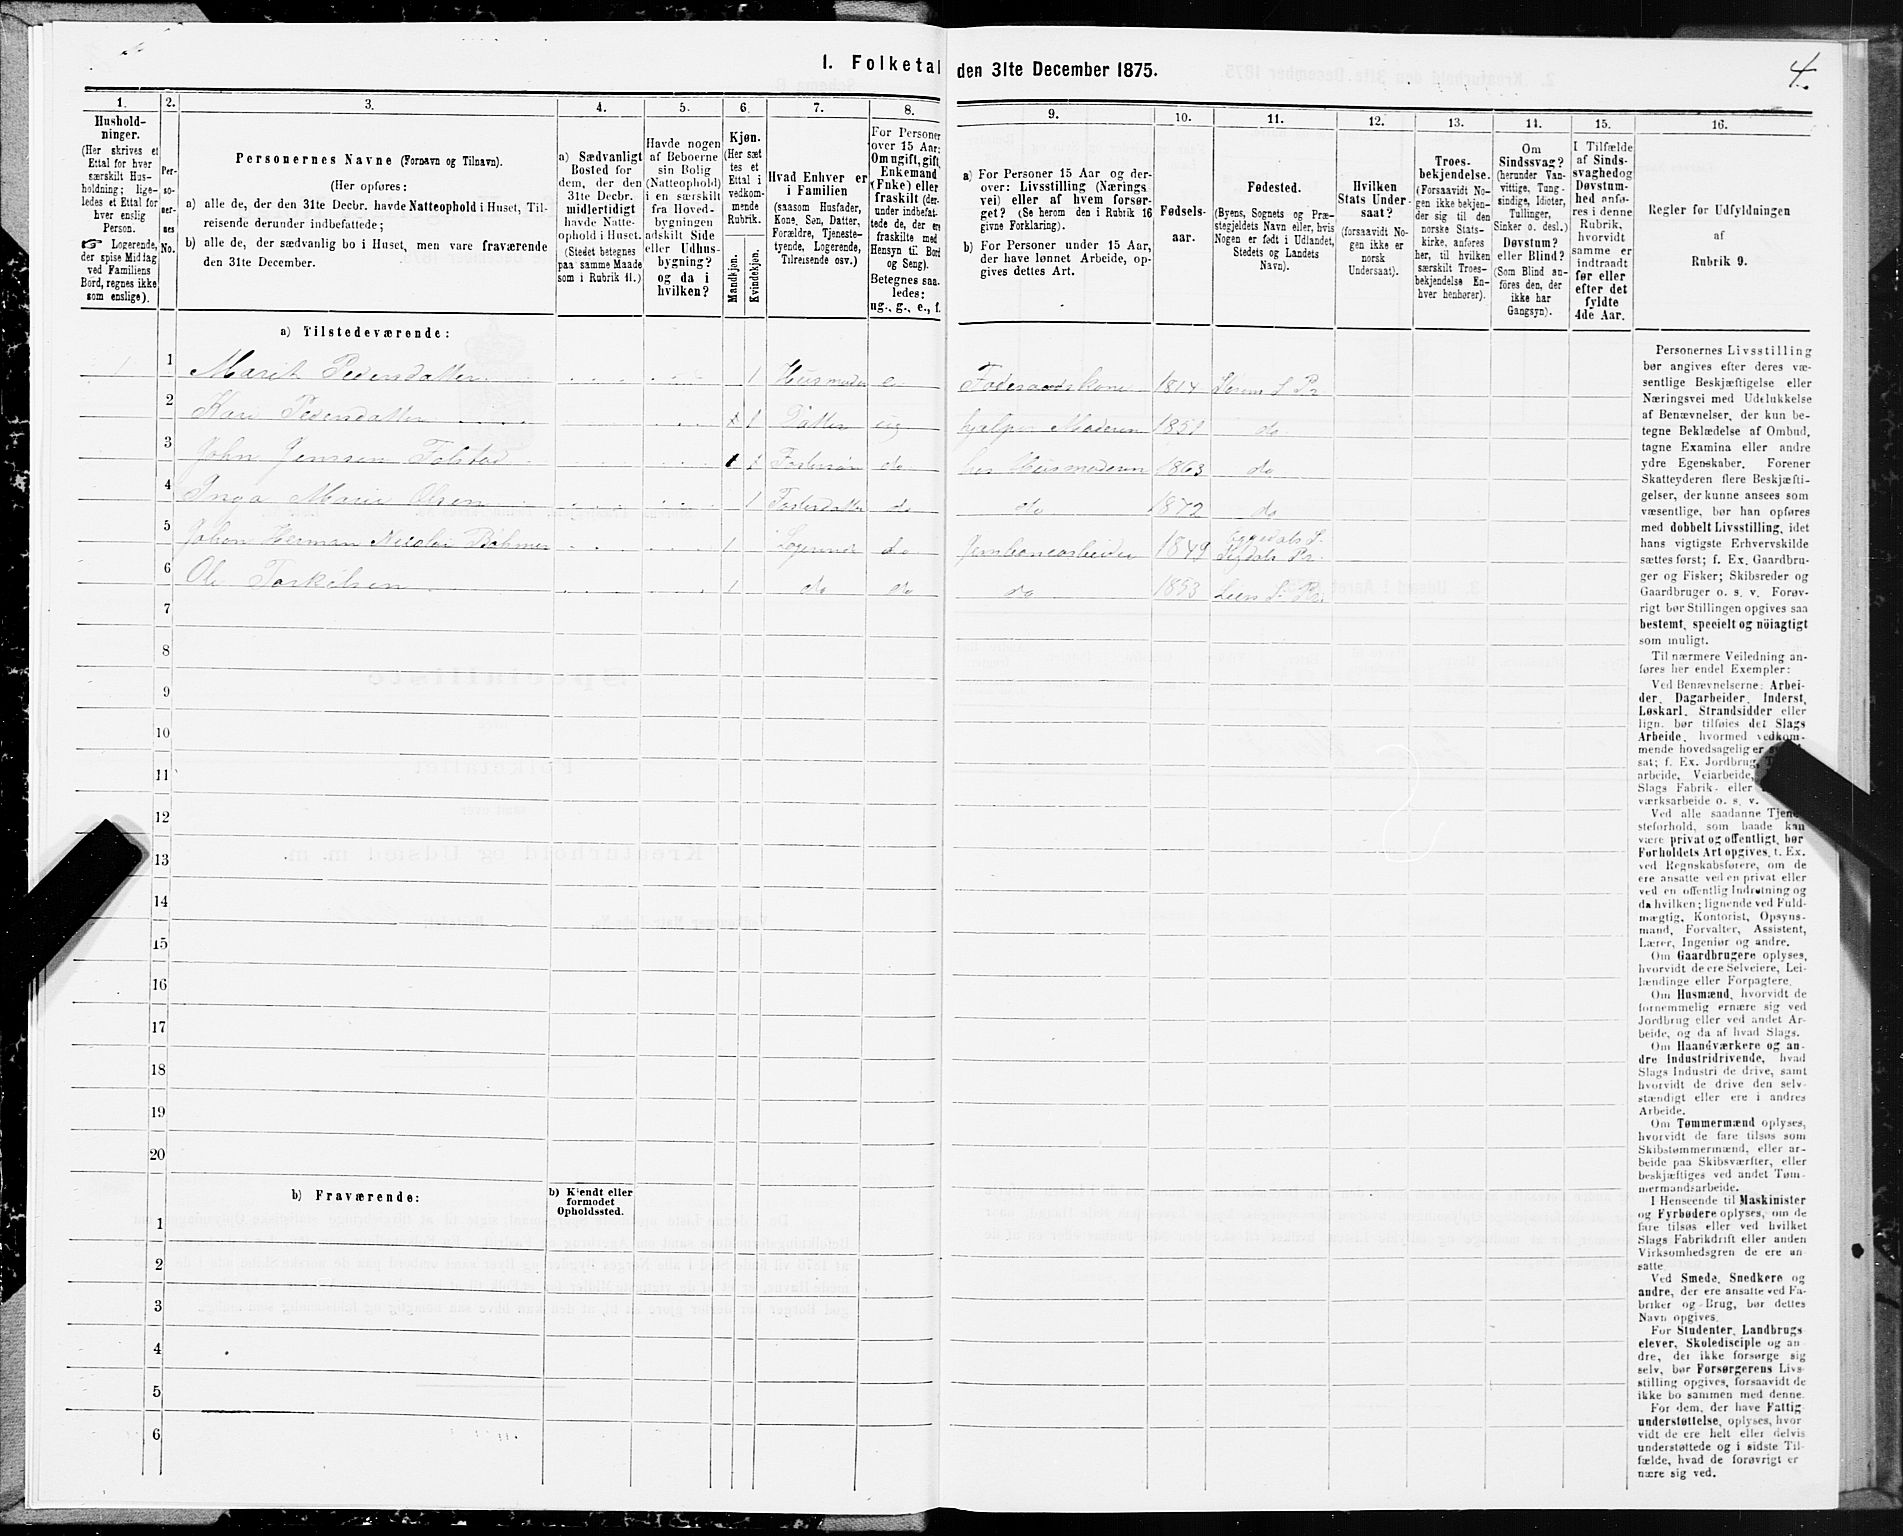 1. Folketal den 31te December 1875.
4.
1. 2. 3. 4. 5. 6. 7. 8. 9. 10. 11. 12. 13. 14. 15. 16.
Hushold-
ninger.
(Her skrives et
Ettal for hver
særskilt Hus-
holdning; lige-
ledes et Ettal for
hver enslig
Person.
☞ Logerende,
der spise Middag
ved Familiens
Bord, regnes ikke
som enslige).
Per-
so-
ner-
nes
No.
Personernes Navne (Fornavn og Tilnavn).
(Her opføres:
a) alle de, der den 31te Decbr. havde Natteophold i Huset, Til-
reisende derunder indbefattede;
b) alle de, der sædvanlig bo i Huset, men vare fraværende
den 31te December.
a) Sædvanligt
Bosted for
dem, der den
31te Decbr.
midlertidigt
havde Natte-
ophold i Huset.
(Stedet betegnes
paa samme Maade
som i Rubrik 11.)
Havde nogen
af Beboerne
sin Bolig
(Natteophold)
i en særskilt
fra Hoved-
bygningen
adskilt Side
eller Udhus-
bygning?
og da i
hvilken?
Kjøn.
(Her sæt
tes et
Ettal i
vedkom-
mende
Rubrik.
Mandkjøn.
Kvindekjøn.
Hvad Enhver er
i Familien
(saasom Husfader,
Kone, Søn, Datter,
Forældre, Tjeneste-
tyende, Logerende,
Tilreisende osv.)
For Personer
over 15 Aar:
Om ugift, gift,
Enkemand
(Enke) eller
fraskilt (der-
under indbefat-
tede de, der ere
fraskilte med
Hensyn til Bord
og Seng).
Betegnes saa-
ledes:
ug., g., e., f.
a) For Personer 15 Aar og der-
over: Livsstilling (Nærings
vei) eller af hvem forsør-
get? (Se herom den i Rubrik 16
givne Forklaring).
b) For Personer under 15 Aar,
der have lønnet Arbeide, op-
gives dettes Art.
Fødsels-
aar.
Fødested.
(Byens, Sognets og Præ-
stegjeldets Navn eller, hvis
Nogen er født i Udlandet,
Stedets og Landets
Navn).
Hvilken
Stats Under-
saat?
(forsaavidt No-
gen ikke er
norsk
Undersaat).
Troes-
bekjendelse.
(Forsaavidt No-
gen ikke bekjen-
der sig til den
norske Stats-
kirke, anføres
her, til hvilken
særskilt Troes-
bekjendelse En-
hver henhører).
Om
Sindssvag?
(herunder Van-
vittige, Tung-
sindige, Idioter,
Tullinger,
Sinker o. desl.)
Døvstum?
eller Blind?
(Som Blind an-
føres den, der
ikke har
Gangsyn).
I Tilfælde
af Sinds-
svaghed og
Døvstum-
hed anfø-
res i denne
Rubrik,
hvorvidt
samme er
indtraadt
før eller
efter det
fyldte
4de Aar.
Regler for Udfyldningen
af
Rubrik 9.
a) Tilstedeværende:
1 1 Marit Pedersdatter 1 Husmoder e. Føderaadskone 1814 S. Pr.
2 Kari Pedersdatter 1 Datter ug hjælper Moderen 1851 do
3 John Jensen Folstad 1 Fostersøn do hos Husmoderen 1863 do
4 Inga Marie Olsen 1 Fosterdatter do do 1872 do
5 Johan Herman Nicolai Bøhmer 1 Logerende do Jernbanearbeider 1849 Eggedals S. Sigdals Pr.
6 Ole Torkilsen 1 do do do 1853 Liers S. Pr.
7
8
9
10
11
12
13
14
15
16
17
18
19
20
b) Fraværende:
b) Kjendt eller
formodet
Opholdssted.
1
2
3
4
5
6
Personernes Livsstilling
bør angives efter deres væ-
sentlige Beskjæftigelse eller
Næringsvei med Udelukkelse
af Benævnelser, der kun be-
tegne Beklædelse af Ombud,
tagne Examina eller andre
ydre Egenskaber. Forener
Skatteyderen flere Beskjæfti-
gelser, der kunne ansees som
væsentlige, bør han opføres
med dobbelt Livsstilling, idet
hans vigtigste Erhvervskilde
sættes først; f. Ex. Gaardbru-
ger og Fisker; Skibsreder og
Gaardbruger o. s. v. Forøv-
rigt bør Stillingen opgives saa
bestemt, specielt og nöiagtigt
som muligt.
Til nærmere Veiledning an-
føres her endel Exempler:
Ved Benævnelserne: Arbei-
der, Dagarbeider, Inderst,
Løskarl, Strandsidder eller
lign. bør tilføies det Slags
Arbeide, hvormed vedkom-
mende hovedsagelig er
sat; f. Ex. Jordbrug,
arbeide, Veiarbeide,
Slags Fabrik- eller
værksarbeide o. s. v.
Ved alle saadanne Tjene-
steforhold, som baade kan
være privat og offentligt, bør
Forholdets Art opgives, t. Ex.
ved Regnskabsførere, om de
ere ansatte ved en privat eller
ved en offentlig Indretning og
da hvilken; lignende ved Fuld-
mægtig, Kontorist, Opsyns-
mand, Forvalter, Assistent,
Lærer, Ingeniør og andre.
Om Gaardbrugere oplyses,
hvorvidt de ere Selveiere, Lei-
lændinge eller Forpagtere.
Om Husmænd, hvorvidt de
fornemmelig ernære sig ved
Jordbrug eller ved andet Ar-
beide, og da af hvad Slags.
Om Haandværkere og an-
dre Industridrivende, hvad
Slags Industri de drive, samt
hvorvidt de drive den selv-
stændigt eller ere i andres
Arbeide.
Om Tømmermænd oplyses,
hvorvidt de fare tilsøs som
Skibstømmermænd, eller ar-
beide paa Skibsværfter, eller
beskjæftiges ved andet Tøm-
mermandsarbeide.
I Henseende til Maskinister
og Fyrbødere oplyses, om de
fare tilsøs eller ved hvilket
Slags Fabrikdrift eller anden
Virksomhedsgren de ere an-
satte.
Ved Smede, Snedkere og
andre, der ere ansatte ved Fa-
briker og Brug, bør dettes
Navn opgives.
For Studenter, Landbrugs
elever, Skoledisciple og an-
dre, der ikke forsørge sig
selv, bør Forsørgerens Livs-
stilling opgives, forsaavidt de
ikke bo sammen med denne.
For dem, der have Fattig
understøttelse, oplyses, hvor
vidt de ere helt eller delvis
understøttede og i sidste Til-
fælde, hvad de forøvrigt er
nære sig ved.